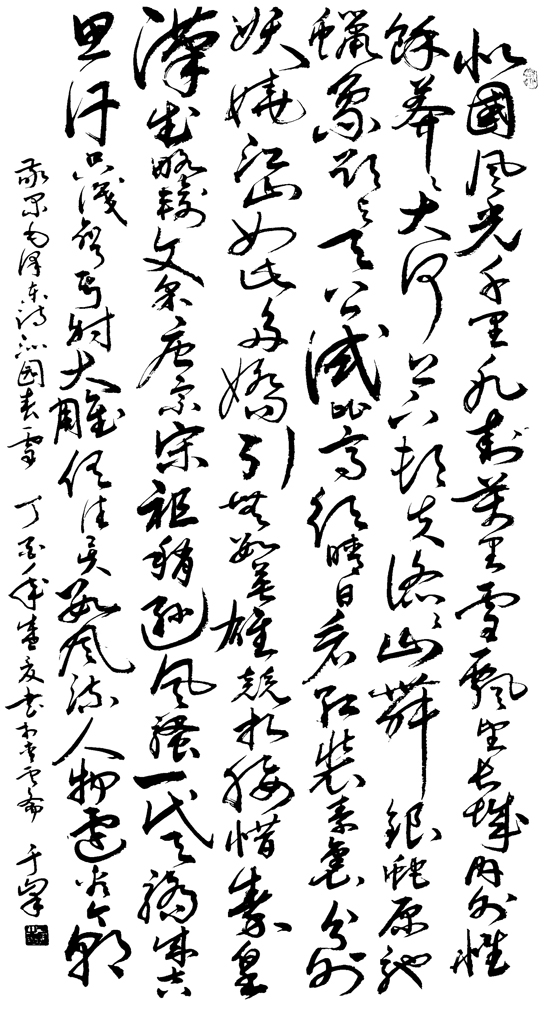 北國風光千里冰封萬里雪飄望長城內外惟
餘莽莽大河上下頓失滔滔山舞銀蛇原馳
蠟象欲与天公試比高須晴日看紅裝素裹分外
妖嬈江山如此多嬌引無數英雄競折腰惜秦皇
漢武略輸文采唐宗宋祖稍遜風騷一代天驕成吉
思汗只識彎弓射大雕俱往矣數風流人物還看今朝
敬录毛澤东詩沁園春雪 丁酉年盛夏书